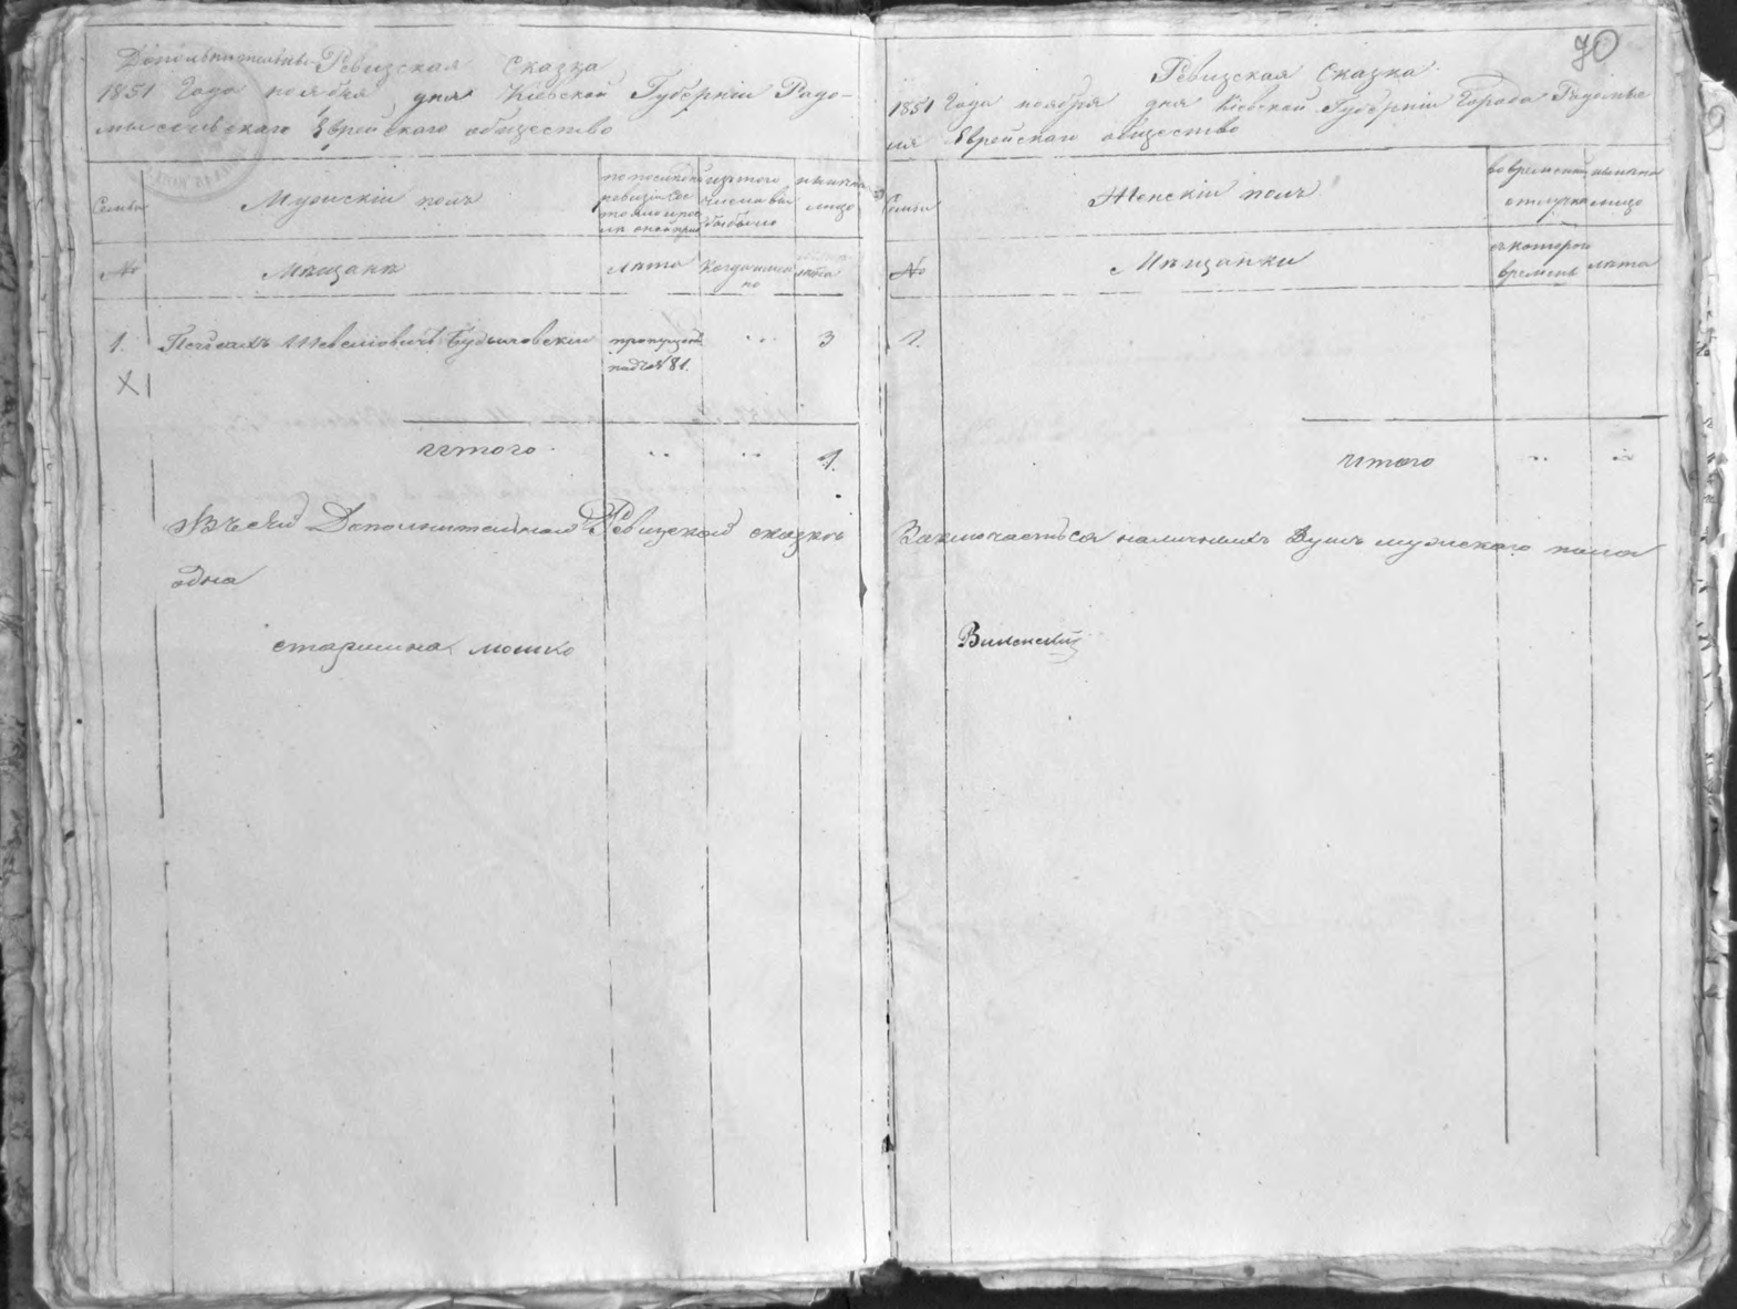 Дополнительна Ревизская Сказка
1851 Года ноября дня Кіевской Губерніи Радо-
мысельскаго Еврейскаго общество
Семьи
Мужскій полъ
по последней
ревизіи сос
тояло и пос
ле оной при
изъ того
числа вы
было
на лицо
№
Мещане
лета
Когда имен
но
лета
1.
Шевелювичъ
пропущенъ
подъ № 81.
3
X
итого
1.
Въ сей Дополнителной Ревизской сказке
одна
старшина мошко
70
Ревизская Сказка
1851 Года ноября дня Кіевской Губерніи Города Радомыс
ля Еврейскаго общество
Семьи
Женскій полъ
во временной
отлучке
на лицо
№
Мещанки
съ которои
времень
лета
1.
итого
Заключаеться наличныхъ Душъ мужскаго пола
Виленский